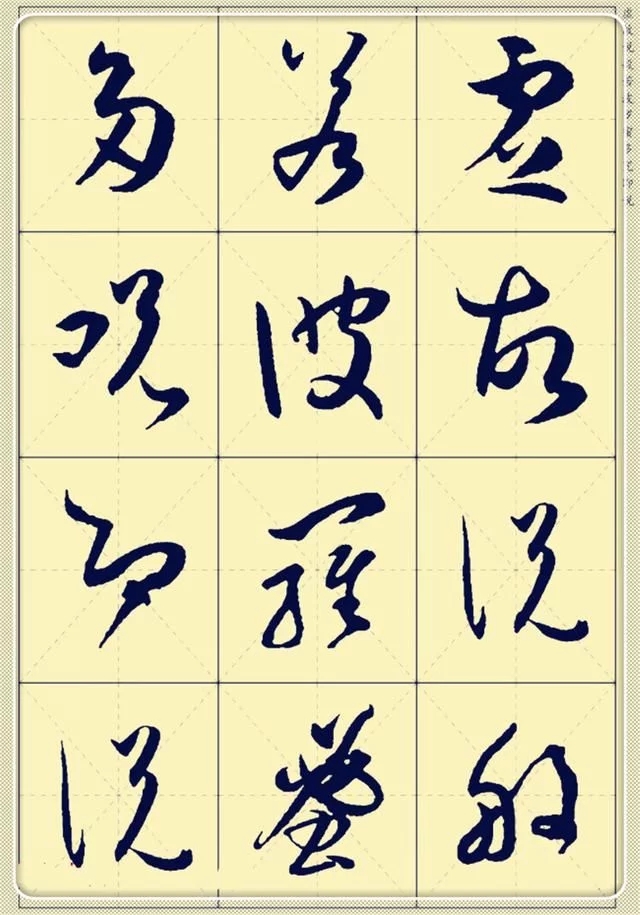 虛故說般
若波羅蜜
多呪即說